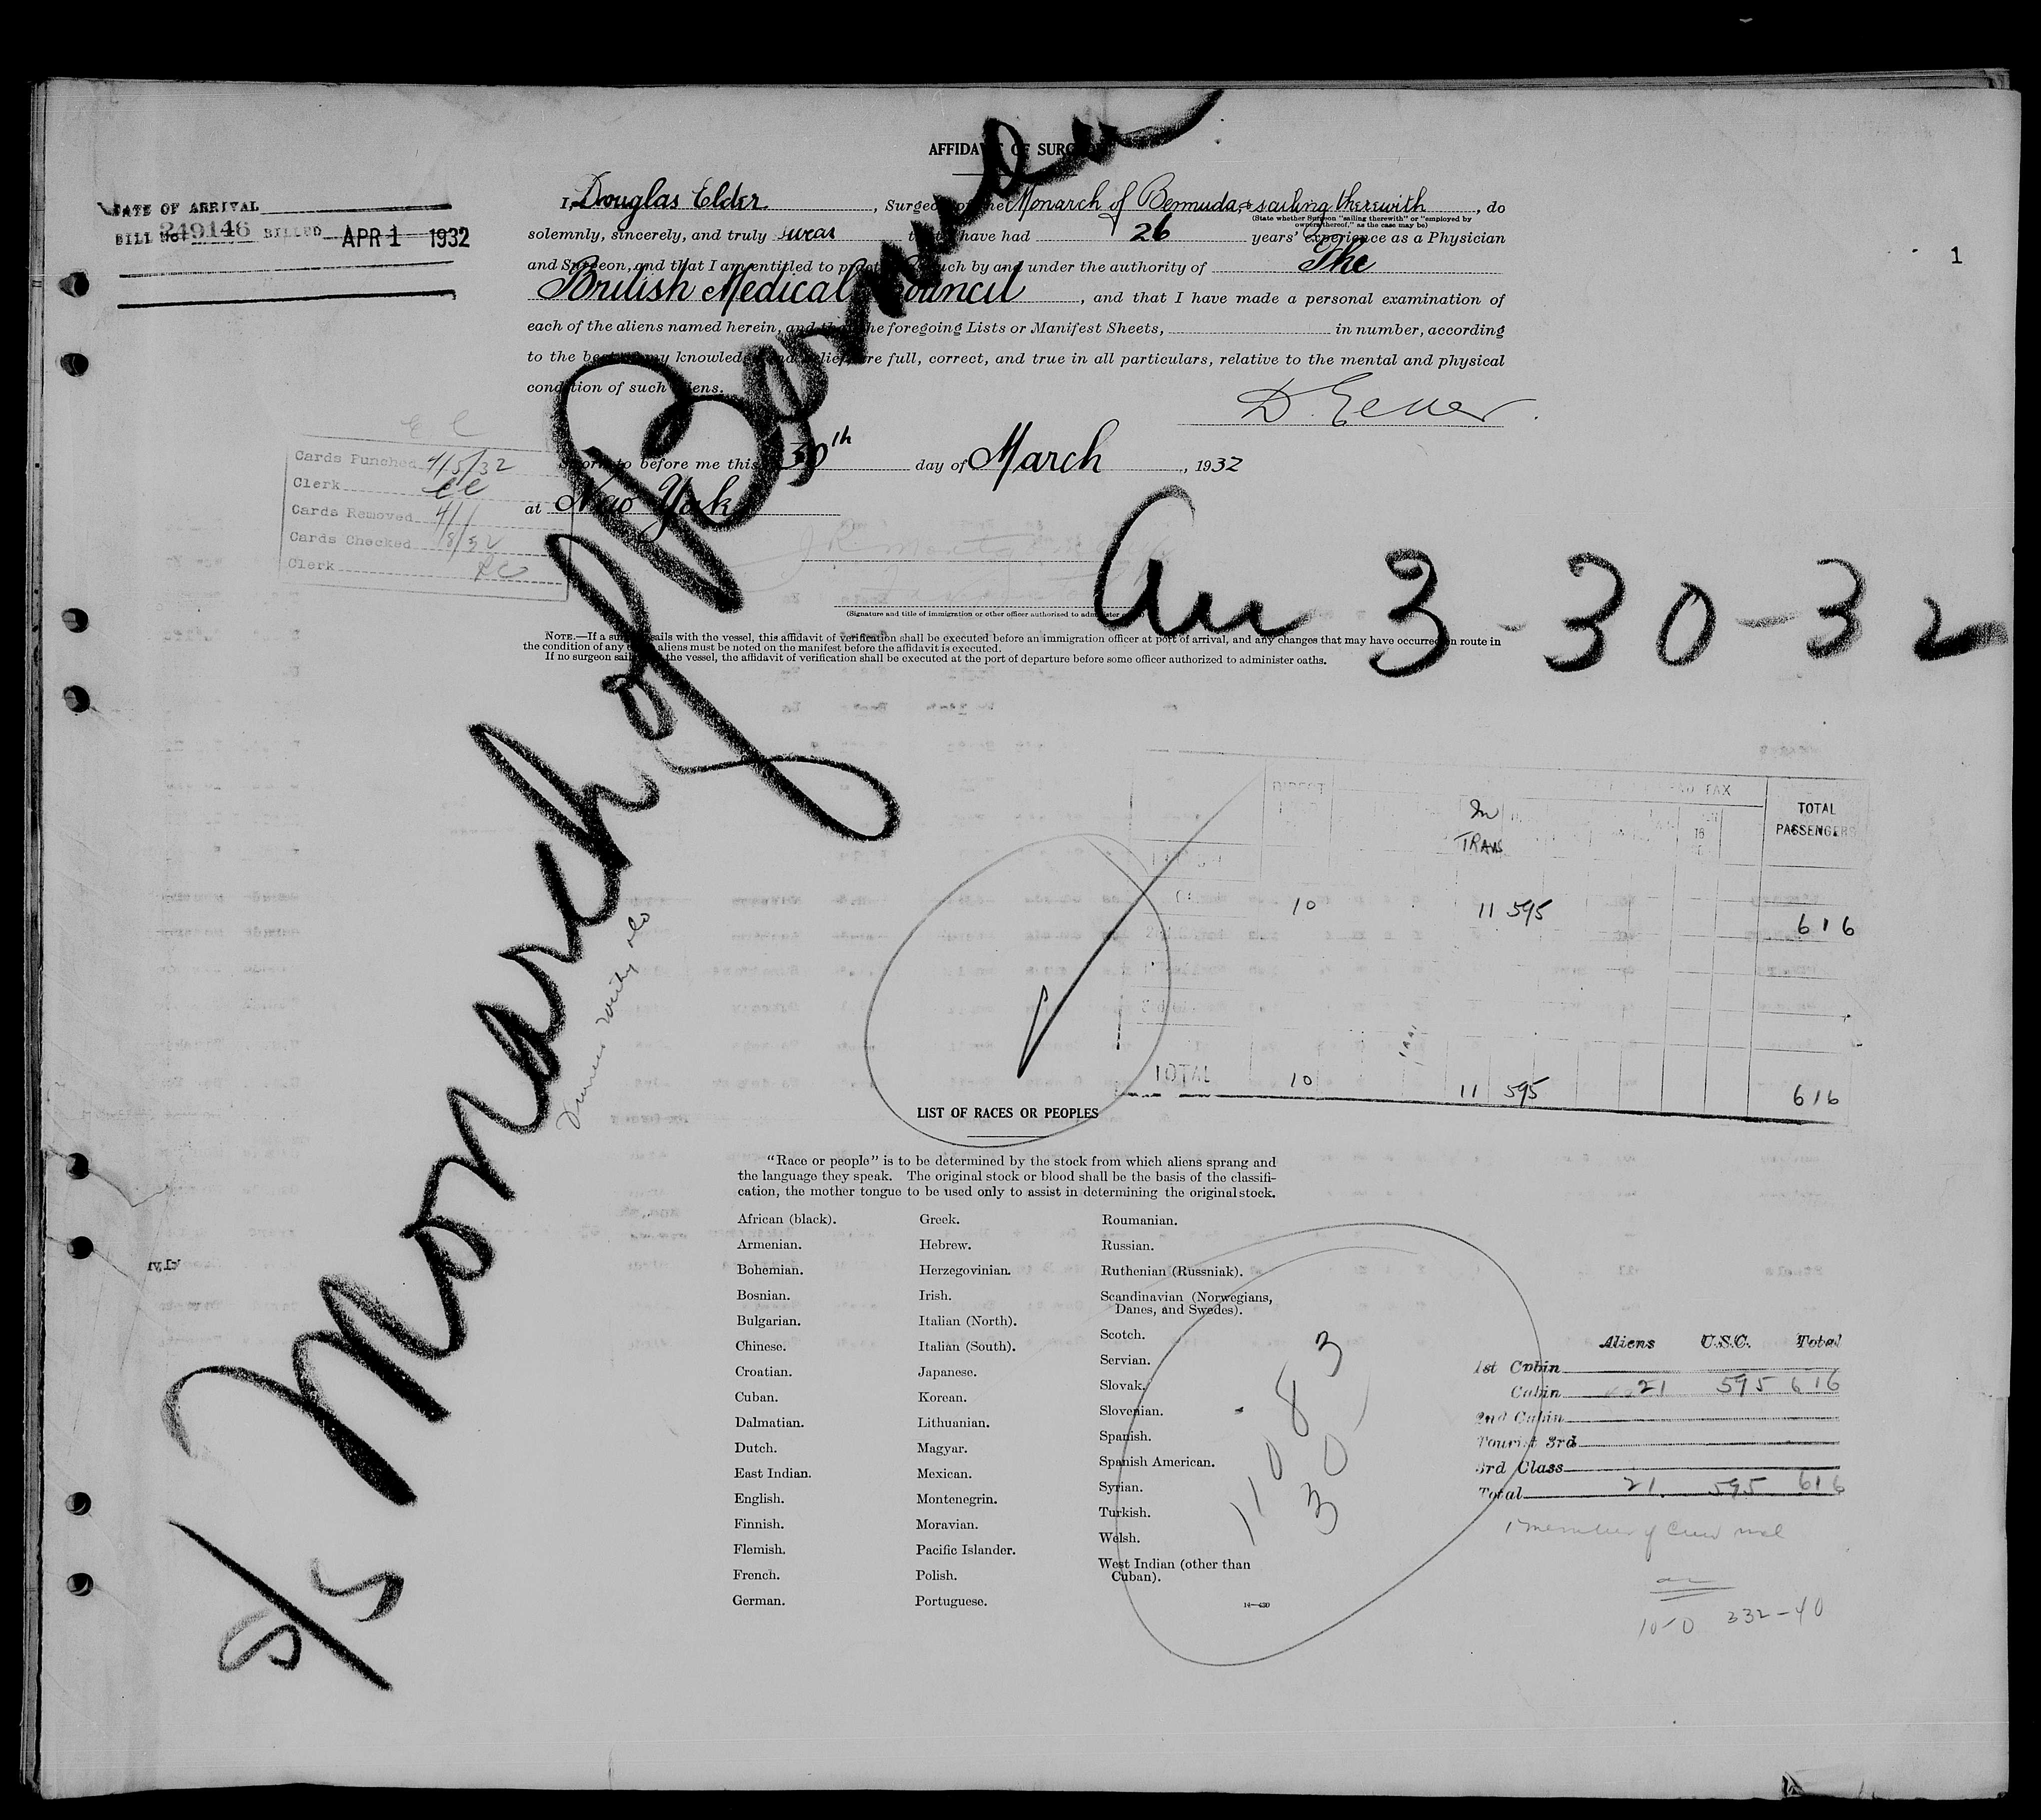 AFFIDAVIT OF SURGEON
DATE OF ARRIVAL
BILL No. 249146 BILLED APR 1 1932
1
I, Douglas Elder, Surgeon of the Monarch of Bermuda, & sailing therewith, do
(State whether Surgeon "sailing therewith" or "employed by
owners thereof," as the case may be)
solemnly, sincerely, and truly swear that I have had 26 years' experience as a Physician
and Surgeon, and that I am entitled to practice as such by and under the authority of The
British Medical Council, and that I have made a personal examination of
each of the aliens named herein, and that the foregoing Lists or Manifest Sheets, in number, according
to the best of my knowledge and belief, are full, correct, and true in all particulars, relative to the mental and physical
condition of such aliens.
D. Elder.
Sworn to before me this 30th day of March, 1932
at New York
Cards Punched 4/5/32
Clerk ee
Cards Removed 4/1/
Cards Checked 4/8/32
Clerk
(Signature and title of immigration or other officer authorized to administer
NOTE.—If a surgeon sails with the vessel, this affidavit of verification shall be executed before an immigration officer at port of arrival, and any changes that may have occurred en route in
the condition of any of the aliens must be noted on the manifest before the affidavit is executed.
If no surgeon sails with the vessel, the affidavit of verification shall be executed at the port of departure before some officer authorized to administer oaths.
S/S Monarch of Bermuda
Arr 3-30-32
DIRECT
In
TRANS
TAX
16
TOTAL
PASSENGERS
10 11 595 616
TOTAL 10 11 595 616
LIST OF RACES OR PEOPLES
"Race or people" is to be determined by the stock from which aliens sprang and
the language they speak. The original stock or blood shall be the basis of the classifi-
cation, the mother tongue to be used only to assist in determining the original stock.
African (black).
Armenian.
Bohemian.
Bosnian.
Bulgarian.
Chinese.
Croatian.
Cuban.
Dalmatian.
Dutch.
East Indian.
English.
Finnish.
Flemish.
French.
German.
Greek.
Hebrew.
Herzegovinian.
Irish.
Italian (North).
Italian (South).
Japanese.
Korean.
Lithuanian.
Magyar.
Mexican.
Montenegrin.
Moravian.
Pacific Islander.
Polish.
Portuguese.
Roumanian.
Russian.
Ruthenian (Russniak).
Scandinavian (Norwegians,
Danes, and Swedes).
Scotch.
Servian.
Slovak.
Slovenian.
Spanish.
Spanish American.
Syrian.
Turkish.
Welsh.
West Indian (other than
Cuban).
14—430
11083
30
Aliens U.S.C. Total
1st Cabin
Cabin 21 595 616
2nd Cabin
Tourist 3rd
3rd Class
Total 21 595 616
1 member of crew
10-0 332-40